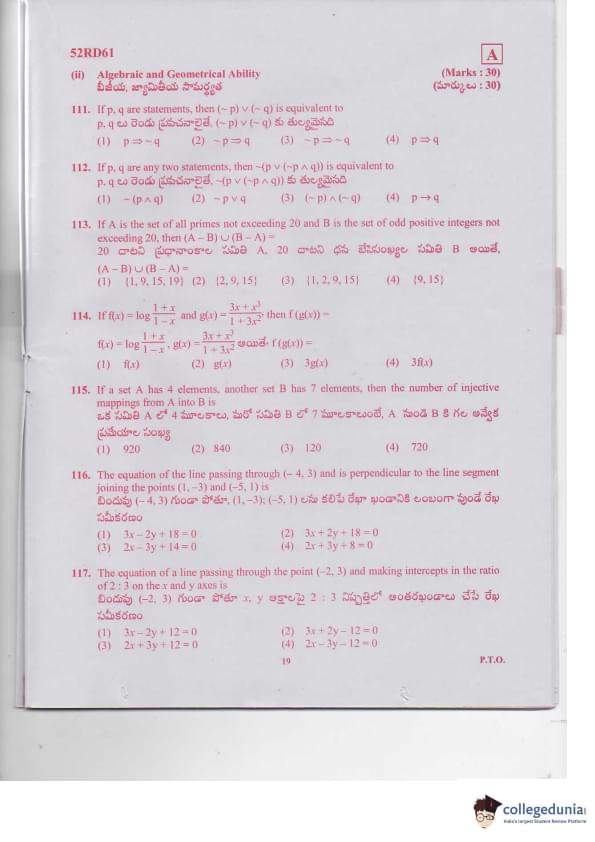 52RD61
A
(ii) Algebraic and Geometrical Ability (Marks : 30)
బీజీయ, జ్యామితీయ సామర్థ్యత (మార్కులు : 30)
111. If p, q are statements, then (~ p) ∨ (~ q) is equivalent to
p, q లు రెండు ప్రవచనాలైతే, (~ p) ∨ (~ q) కు తుల్యమైనది
(1) p ⇒ ~ q (2) ~ p ⇒ q (3) ~ p ⇒ ~ q (4) p ⇒ q
112. If p, q are any two statements, then ~(p ∨ (~p ∧ q)) is equivalent to
p, q లు రెండు ప్రవచనాలైతే, ~(p ∨ (~p ∧ q)) కు తుల్యమైనది
(1) ~ (p ∧ q) (2) ~ p ∨ q (3) (~ p) ∧ (~ q) (4) p → q
113. If A is the set of all primes not exceeding 20 and B is the set of odd positive integers not
exceeding 20, then (A – B) ∪ (B – A) =
20 దాటని ప్రధానాంకాల సమితి A, 20 దాటని ధన బేసిసంఖ్యల సమితి B అయితే,
(A – B) ∪ (B – A) =
(1) {1, 9, 15, 19} (2) {2, 9, 15} (3) {1, 2, 9, 15} (4) {9, 15}
114. If f(x) = log (1 + x)/(1 – x) and g(x) = (3x + x³)/(1 + 3x²), then f (g(x)) =
f(x) = log (1 + x)/(1 – x), g(x) = (3x + x³)/(1 + 3x²) అయితే, f (g(x)) =
(1) f(x) (2) g(x) (3) 3g(x) (4) 3f(x)
115. If a set A has 4 elements, another set B has 7 elements, then the number of injective
mappings from A into B is
ఒక సమితి A లో 4 మూలకాలు, మరో సమితి B లో 7 మూలకాలుంటే, A నుండి B కి గల అన్వేక
ప్రమేయాల సంఖ్య
(1) 920 (2) 840 (3) 120 (4) 720
116. The equation of the line passing through (– 4, 3) and is perpendicular to the line segment
joining the points (1, –3) and (–5, 1) is
బిందువు (– 4, 3) గుండా పోతూ, (1, –3); (–5, 1) లను కలిపే రేఖా ఖండానికి లంబంగా వుండే రేఖ
సమీకరణం
(1) 3x – 2y + 18 = 0 (2) 3x + 2y + 18 = 0
(3) 2x – 3y + 14 = 0 (4) 2x + 3y + 8 = 0
117. The equation of a line passing through the point (–2, 3) and making intercepts in the ratio
of 2 : 3 on the x and y axes is
బిందువు (–2, 3) గుండా పోతూ x, y అక్షాలపై 2 : 3 నిష్పత్తిలో అంతరఖండాలు చేసే రేఖ
సమీకరణం
(1) 3x – 2y + 12 = 0 (2) 3x + 2y – 12 = 0
(3) 2x + 3y + 12 = 0 (4) 2x – 3y – 12 = 0
19 P.T.O.
collegedunia
India's largest Student Review Platform